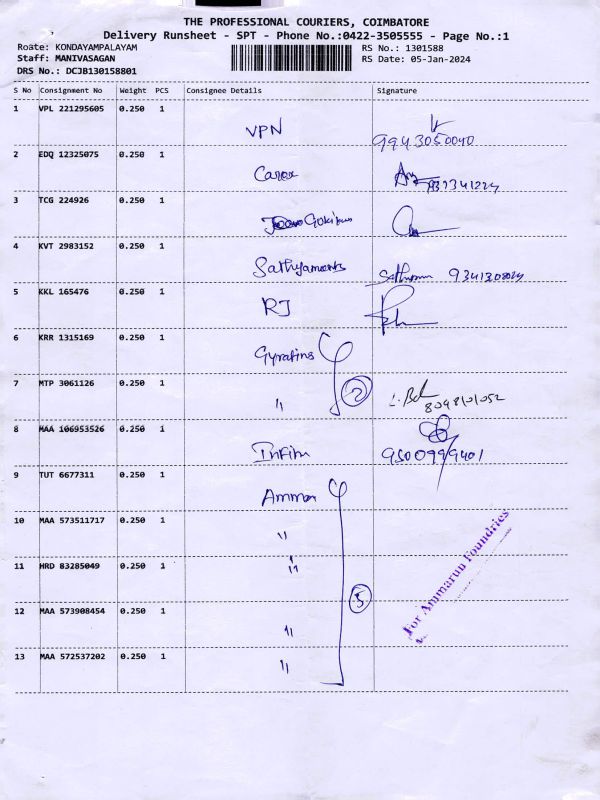 THE PROFESSIONAL COURIERS, COIMBATORE
Delivery Runsheet - SPT - Phone No.:0422-3505555 - Page No.:1
Roate: KONDAYAMPALAYAM
RS No.: 1301588
Staff: MANIVASAGAN
RS Date: 05-Jan-2024
DRS No.: DCJB130158801
S No Consignment No Weight PCS Consignee Details Signature
1 VPL 221295605 0.250 1
VPN 9943050040
2 EDQ 12325075 0.250 1
3 TCG 224926 0.250 1
4 KVT 2983152 0.250 1
5 KKL 165476 0.250 1
RJ
6 KRR 1315169 0.250 1
7 MTP 3061126 0.250 1
" 2
8 MAA 106953526 0.250 1
9 TUT 6677311 0.250 1
10 MAA 573511717 0.250 1
"
11 HRD 83285049 0.250 1
"
5
12 MAA 573908454 0.250 1
"
13 MAA 572537202 0.250 1
"
For Ammarun Foundries